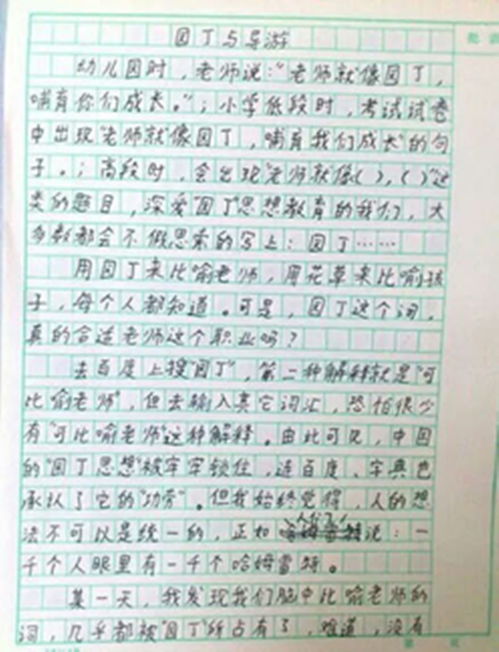 园丁与导游
幼儿园时，老师说：“老师就像园丁，
哺育你们成长。”；小学低段时，考试试卷
中出现“老师就像园丁，哺育我们成长”的句
子。；高段时，会出现“老师就像（），（）”这
类的题目，深爱“园丁”思想教育的我们，大
多数都会不假思索的写上：园丁……
用园丁来比喻老师，用花草来比喻孩
子，每个人都知道。可是，园丁这个词，
真的合适老师这个职业吗？
去百度上搜“园丁”，第二种解释就是“可
比喻老师”，但去输入其它词汇，恐怕很少
有“可比喻老师”这种解释。由此可见，中国
的“园丁思想”被牢牢锁住，连百度、字典也
承认了它的“功劳”。但我始终觉得，人的想
法不可以是统一的，正如说：一
千个人眼里有一千个哈姆雷特。
某一天，我发现我们脑中比喻老师的
词，几乎都被“园丁”所占有了，难道，没有
第 页